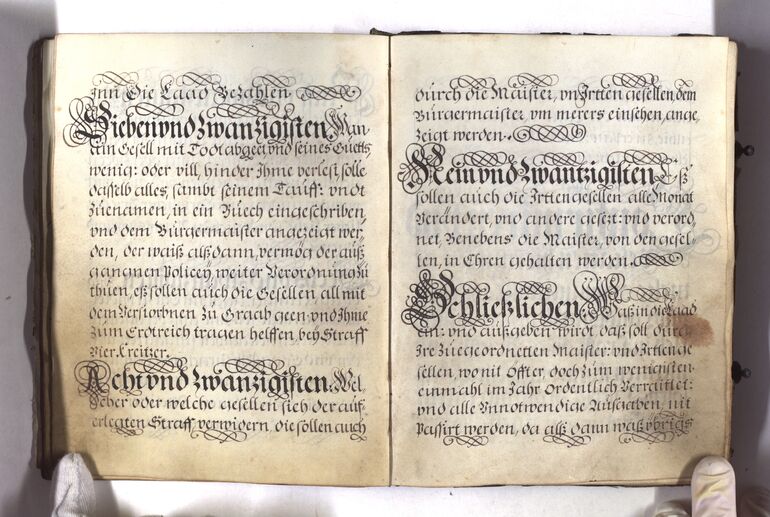 Inn Die Laad Bezahlen
Siebenvndzwanzigisten, Wan
ein Gesell mit Todt abgeet, vnd seines Guetts,
wenig: oder vill, hinder Ihme verlest, solle
dasselb alles, sambt seinem Tauff: vndt
Zuenamen, in ein Buech eingeschriben,
vnd dem Bürgermaister angezeigt wer,
den, der waiß alßdann, vermög der auß
gangnen Policey, weiter Verordnung zu
thuen, eß sollen auch die Gesellen all mit
dem Verstorbnen zu Graab geen, vnd Ihme
zum Erdtreich tragen helffen, bey Straff
Vier Creitzer.
Achtvndzwanzigisten. Wel,
cher oder welche gesellen sich der auf,
erlegten Straff verwidern, die sollen auch
durch die Maister, vn Irtten gesellen, dem
Bürgermaister, vm merers einsehen, ange,
zeigt werden.
Neinvndzwantzigisten Eß
sollen auch die Irttengesellen alle Monat
Verändert, vnd andere gesezt: vnd verord,
net, Benebens die Maister, von den gesel,
len, in Ehren gehalten werden.
Schließlichen. Waß in die Laad
ein: vnd außgeben wirdt, daß soll durch
Ire Zuegeordnetten Maister: vnd Irttenge
sellen, wo nit Öffter, doch zum wenigisten
einmahl im Jahr Ordentlich Verraittet:
vnd alle Vnnotwendige Ausgaben, nit
Passirt werden, da alß dann waß ybrigs